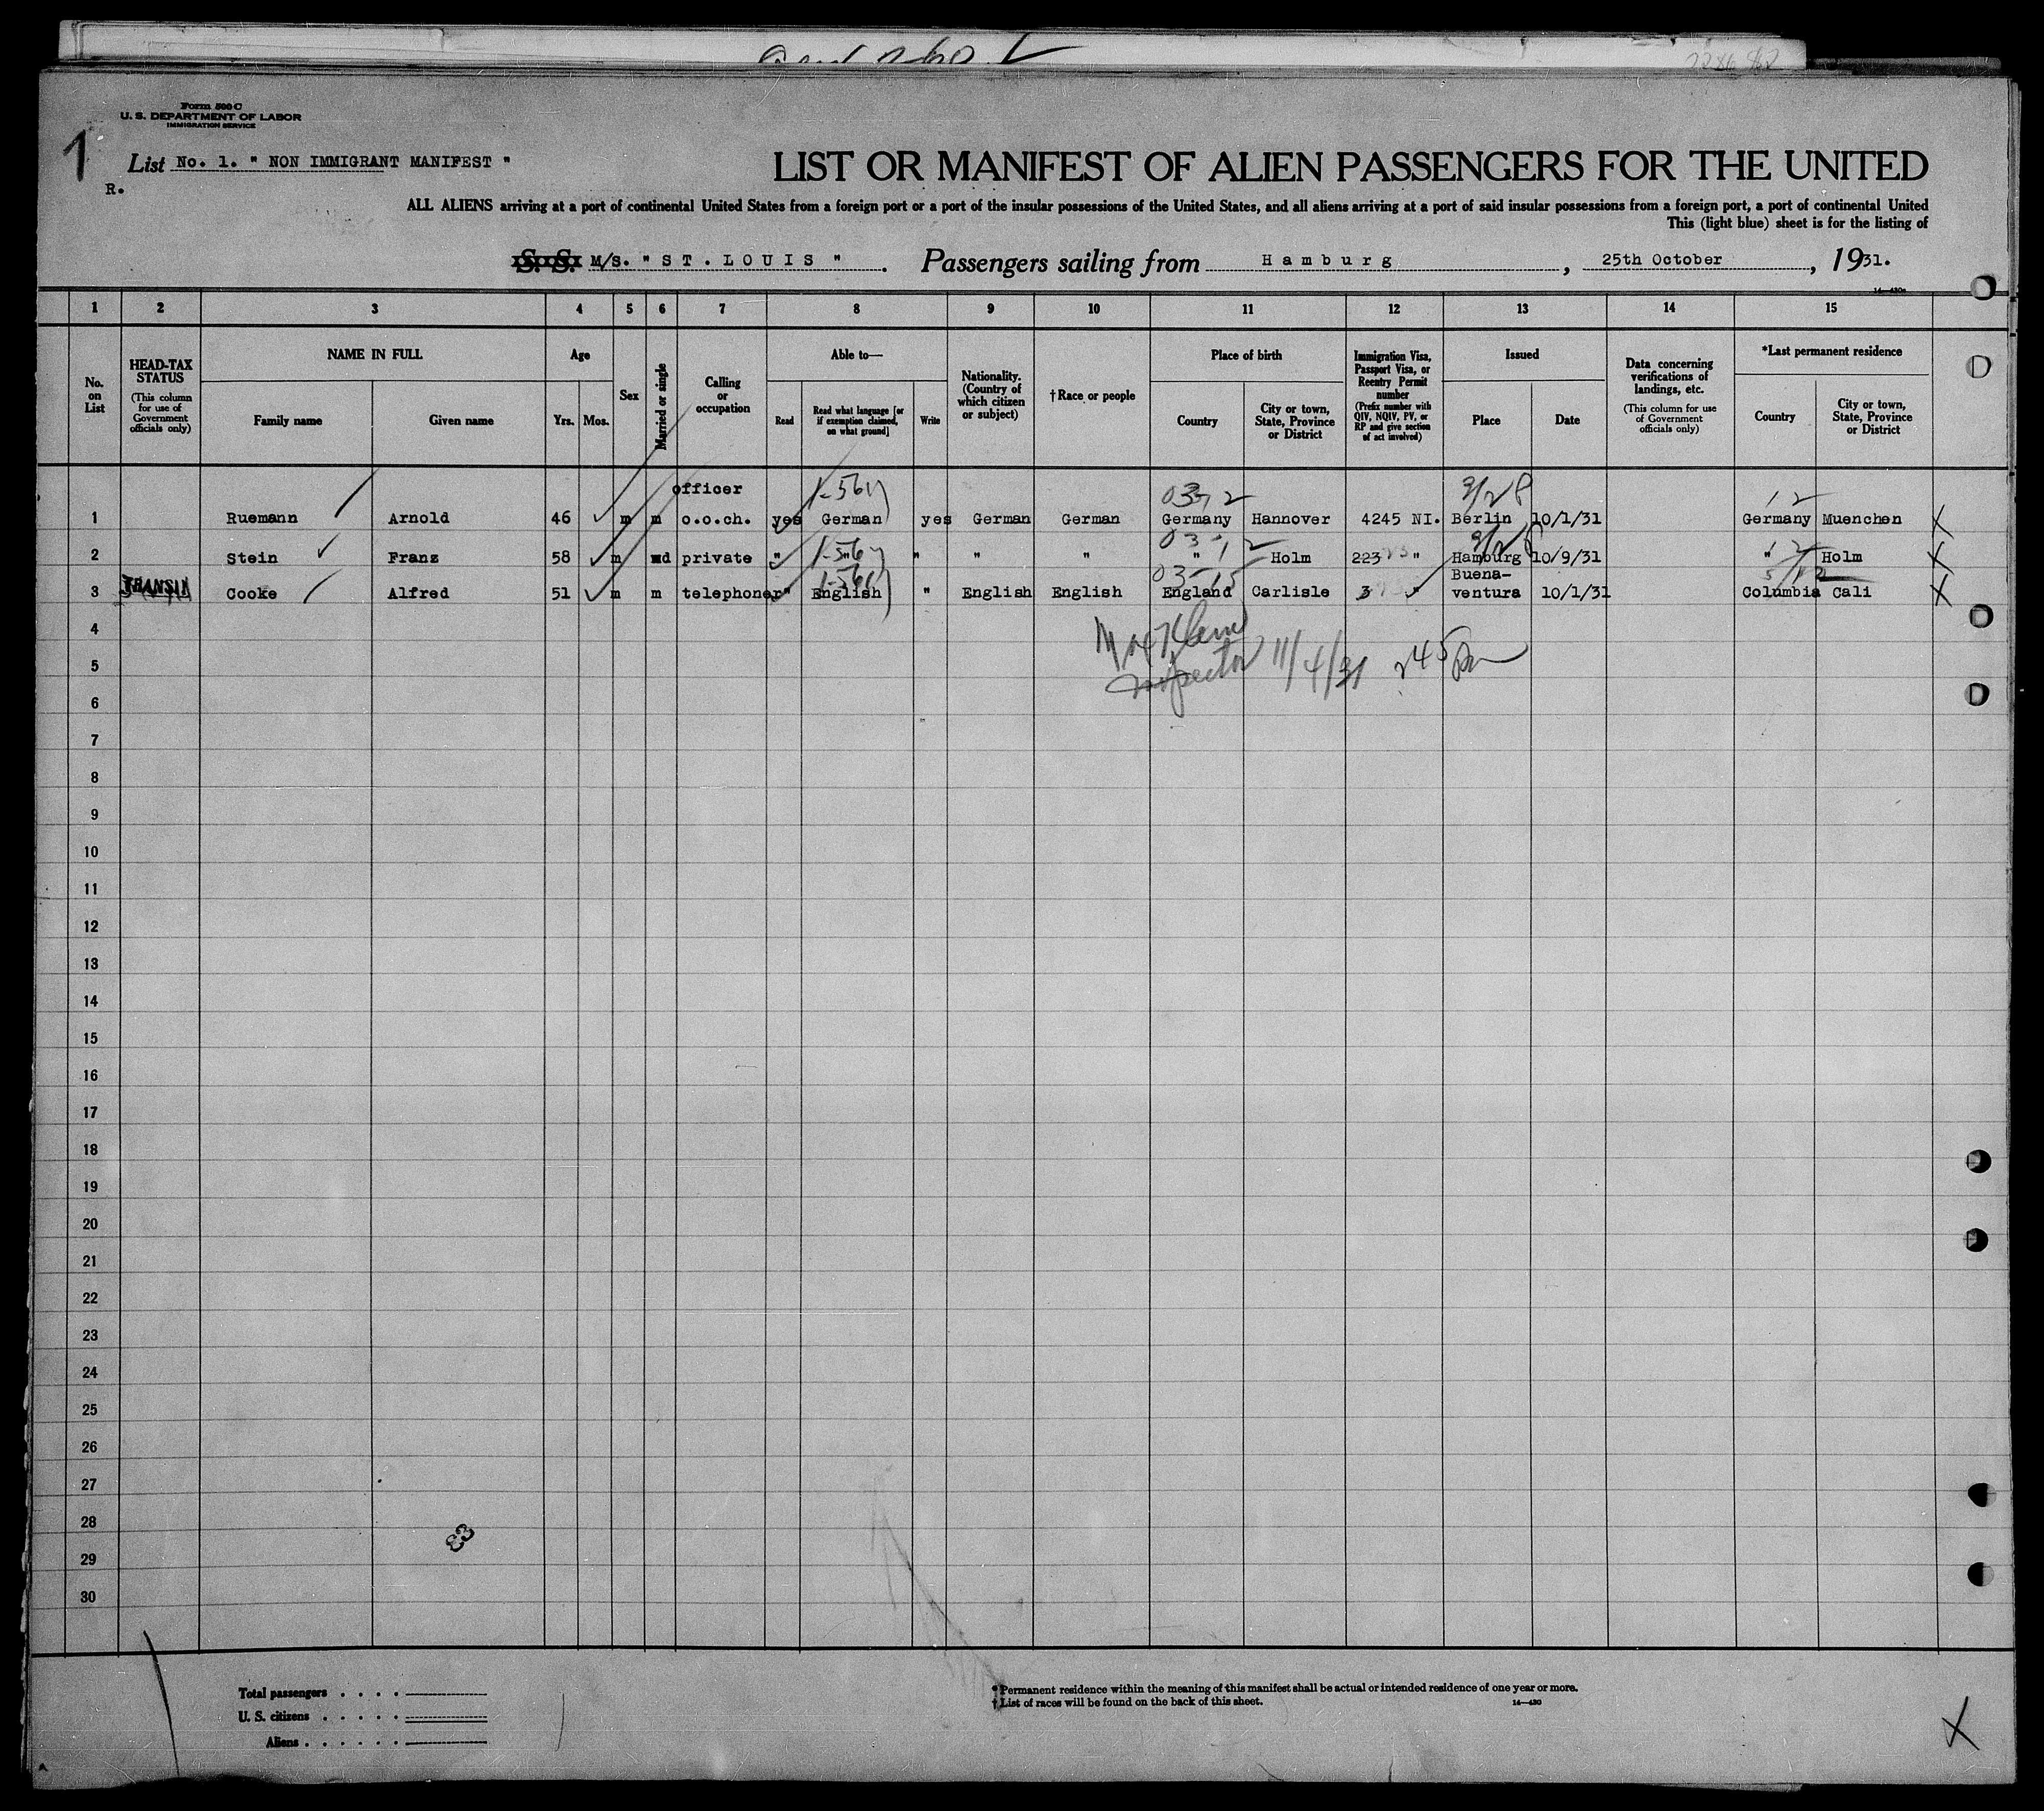 Form 500 C
U. S. DEPARTMENT OF LABOR
IMMIGRATION SERVICE
1
List No. 1. " NON IMMIGRANT MANIFEST "
R.
LIST OR MANIFEST OF ALIEN PASSENGERS FOR THE UNITED
ALL ALIENS arriving at a port of continental United States from a foreign port or a port of the insular possessions of the United States, and all aliens arriving at a port of said insular possessions from a foreign port, a port of continental United
This (light blue) sheet is for the listing of
S. S. M/S. " ST. LOUIS ". Passengers sailing from Hamburg, 25th October, 1931.
14—430a
1 2 3 4 5 6 7 8 9 10 11 12 13 14 15
No. on List
HEAD-TAX STATUS (This column for use of Government officials only)
NAME IN FULL Family name Given name
Age Yrs. Mos.
Sex
Married or single
Calling or occupation
Able to— Read Read what language [or if exemption claimed, on what ground] Write
Nationality. (Country of which citizen or subject)
†Race or people
Place of birth Country City or town, State, Province or District
Immigration Visa, Passport Visa, or Reentry Permit number (Prefix number with QIV, NQIV, PV, or RP and give section of act involved)
Issued Place Date
Data concerning verifications of landings, etc. (This column for use of Government officials only)
*Last permanent residence Country City or town, State, Province or District
1 Ruemann Arnold 46 m m officer o.o.ch. yes German yes German German Germany Hannover 4245 NI. Berlin 10/1/31 Germany Muenchen X
2 Stein Franz 58 m wd private " " " " " " Holm 223 " Hamburg 10/9/31 " Holm X
3 TRANSIT Cooke Alfred 51 m m telephoner " English " English English England Carlisle 3 " Buena-ventura 10/1/31 Columbia Cali X
Inspector 11/4/31 245 pm
4
5
6
7
8
9
10
11
12
13
14
15
16
17
18
19
20
21
22
23
24
25
26
27
28
29
30
83
Total passengers
U. S. citizens
Aliens
*Permanent residence within the meaning of this manifest shall be actual or intended residence of one year or more.
†List of races will be found on the back of this sheet.
14—430
X